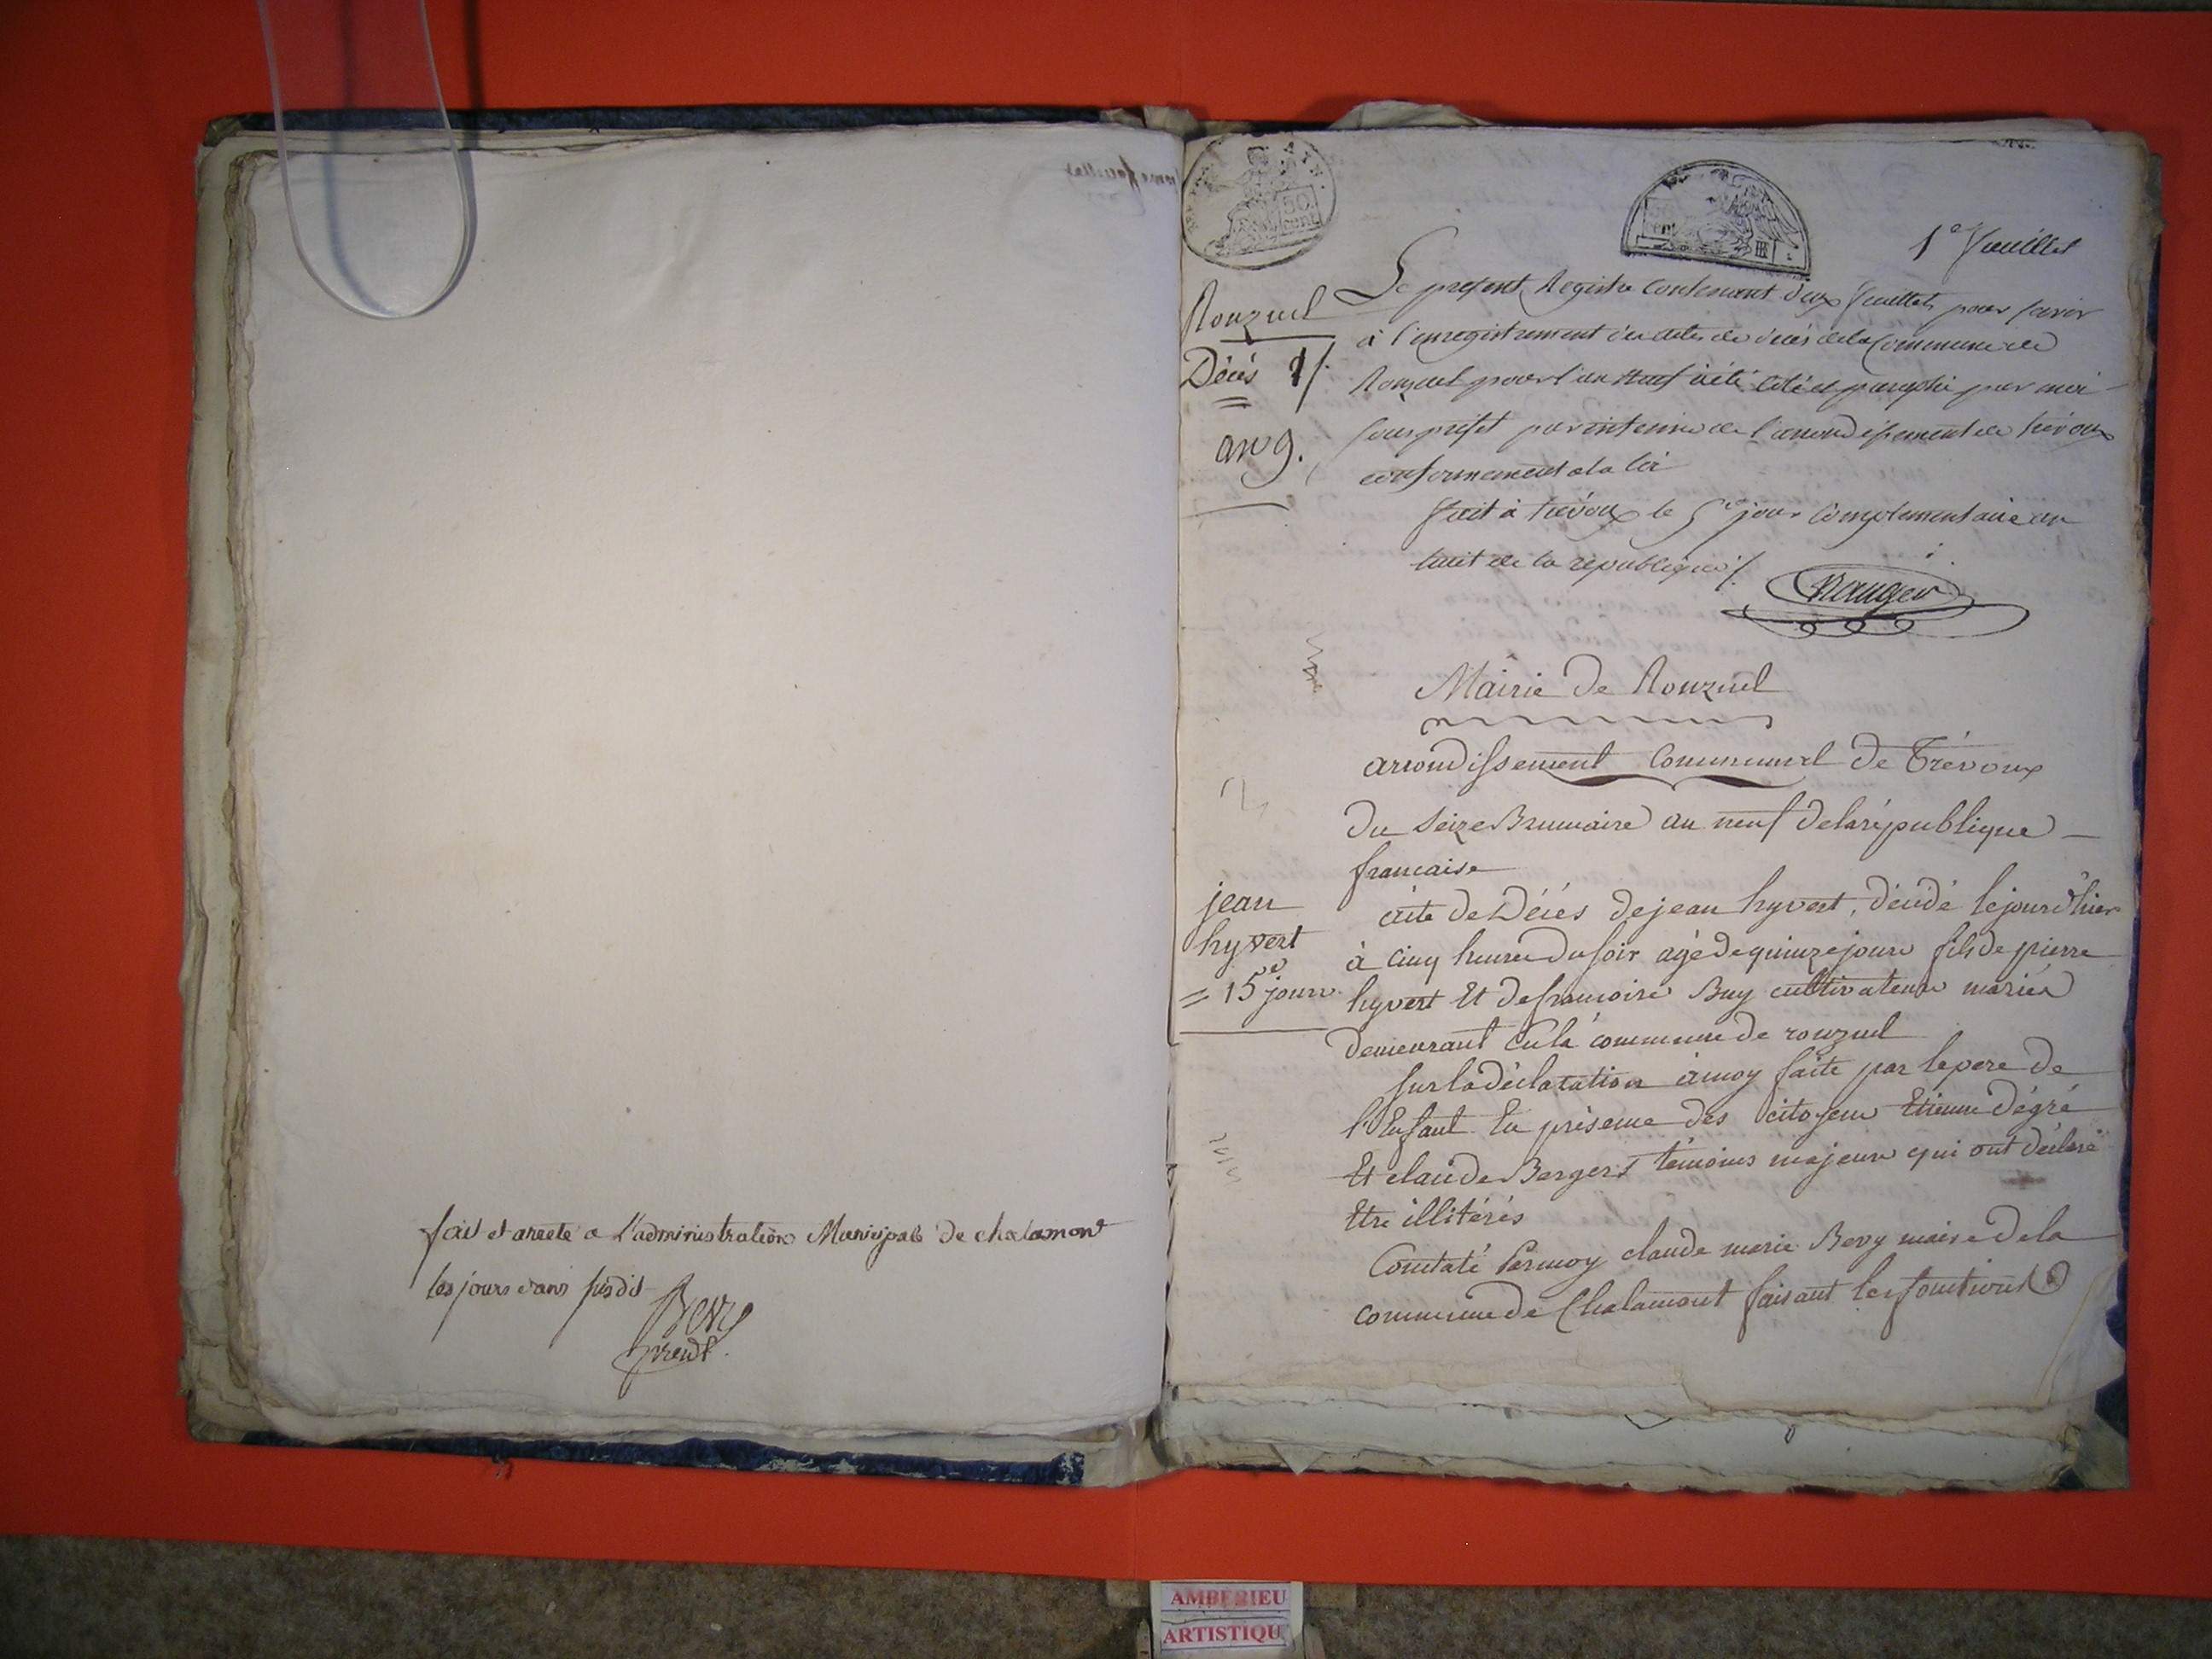 fait et areté a L'administration Municipale de chalamont
les jours et ans susdit
Bevy
presdt.
1e feuillet
50
cent
Ronzuel
Décés
an 9.
Le present Registre Contenant deux feuillets pour servir
à l'enregistrement des actes de décés de la Commune de
Ronzuel pour l'an Neuf à été Coté et paraphé par moi
sous préfet par interim de l'arrondissement de trévoux
conformement a la loi
fait à trévoux le 5e jour Complementaire an
huit de la république
Mairie De Ronzuel
arrondissement Communal De Trévoux
Du Seize Brumaire an neuf de la république
francaise
jean
hyvert
= 15 jours
acte de Décés de jean hyvert, décédé le jour d'hier
à cinq heures du soir agé de quinze jours fils de pierre
hyvert Et de francoise Buy cultivateurs mariés
Demeurant En la commune de ronzuel
Sur la déclaration à moy faite par le pere de
l'Enfant En présence des citoyens Etienne Dégré
Et claude Berger témoins majeurs qui ont déclaré
Etre illitérés
Constaté Par moy claude marie Bevy maire de la
commune de Chalamont faisant les fonctions
AMBERIEU
ARTISTIQU